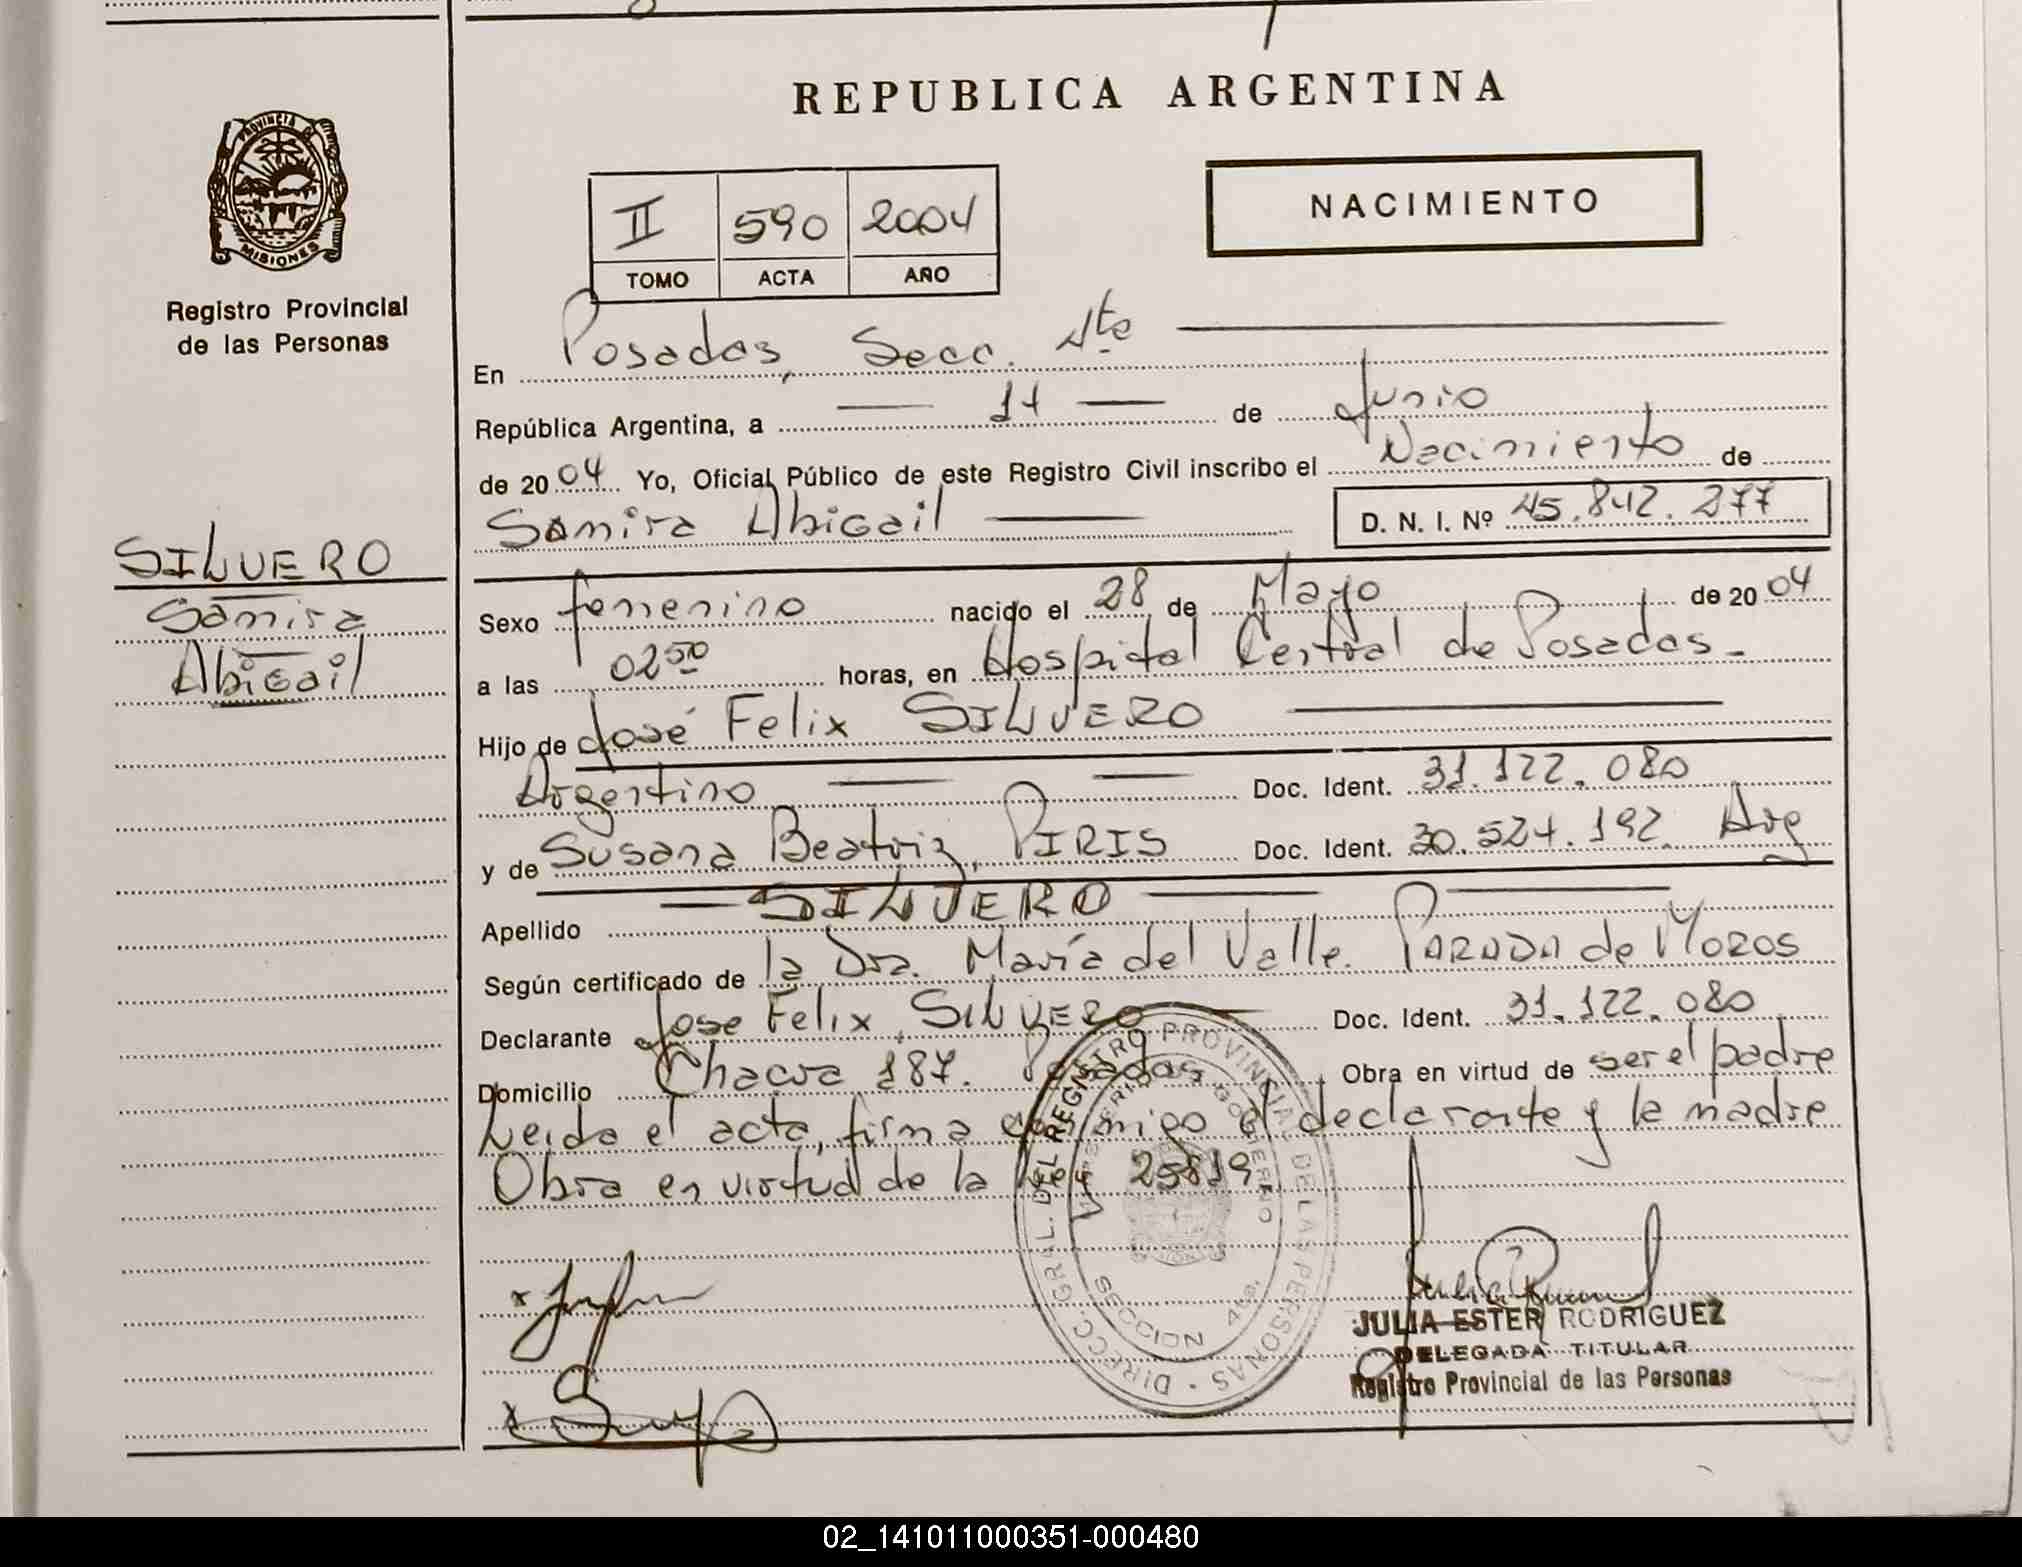 REPUBLICA ARGENTINA
PROVINCIA DE MISIONES
Registro Provincial
de las Personas
II 590 2004
TOMO ACTA AÑO
NACIMIENTO
En Posadas, Secc. 4ta
República Argentina, a 17 de Junio
de 2004 Yo, Oficial Público de este Registro Civil inscribo el Nacimiento de
Samira Abigail D. N. I. Nº 45.842.277
SILVERO
Samira
Abigail
Sexo femenino nacido el 28 de Mayo de 2004
a las 02 50 horas, en Hospital Central de Posadas.-
Hijo de José Felix SILVERO
Argentino Doc. Ident. 31.122.080
y de Susana Beatriz PIRIS Doc. Ident. 30.527.192. Arg
Apellido SILVERO
Según certificado de la Dra. María del Valle PARADA de MOROS
Declarante Jose Felix SILVERO Doc. Ident. 31.122.080
Domicilio Chacra 187. Posadas Obra en virtud de ser el padre
Leida el acta, firma conmigo el declarante y la madre
Obra en virtud de la Ley 25819
DIRECC. GRAL. DEL REGISTRO PROVINCIAL DE LAS PERSONAS
GOBIERNO
SECCION 4ta.
JULIA ESTER RODRIGUEZ
DELEGADA TITULAR
Registro Provincial de las Personas
02_141011000351-000480